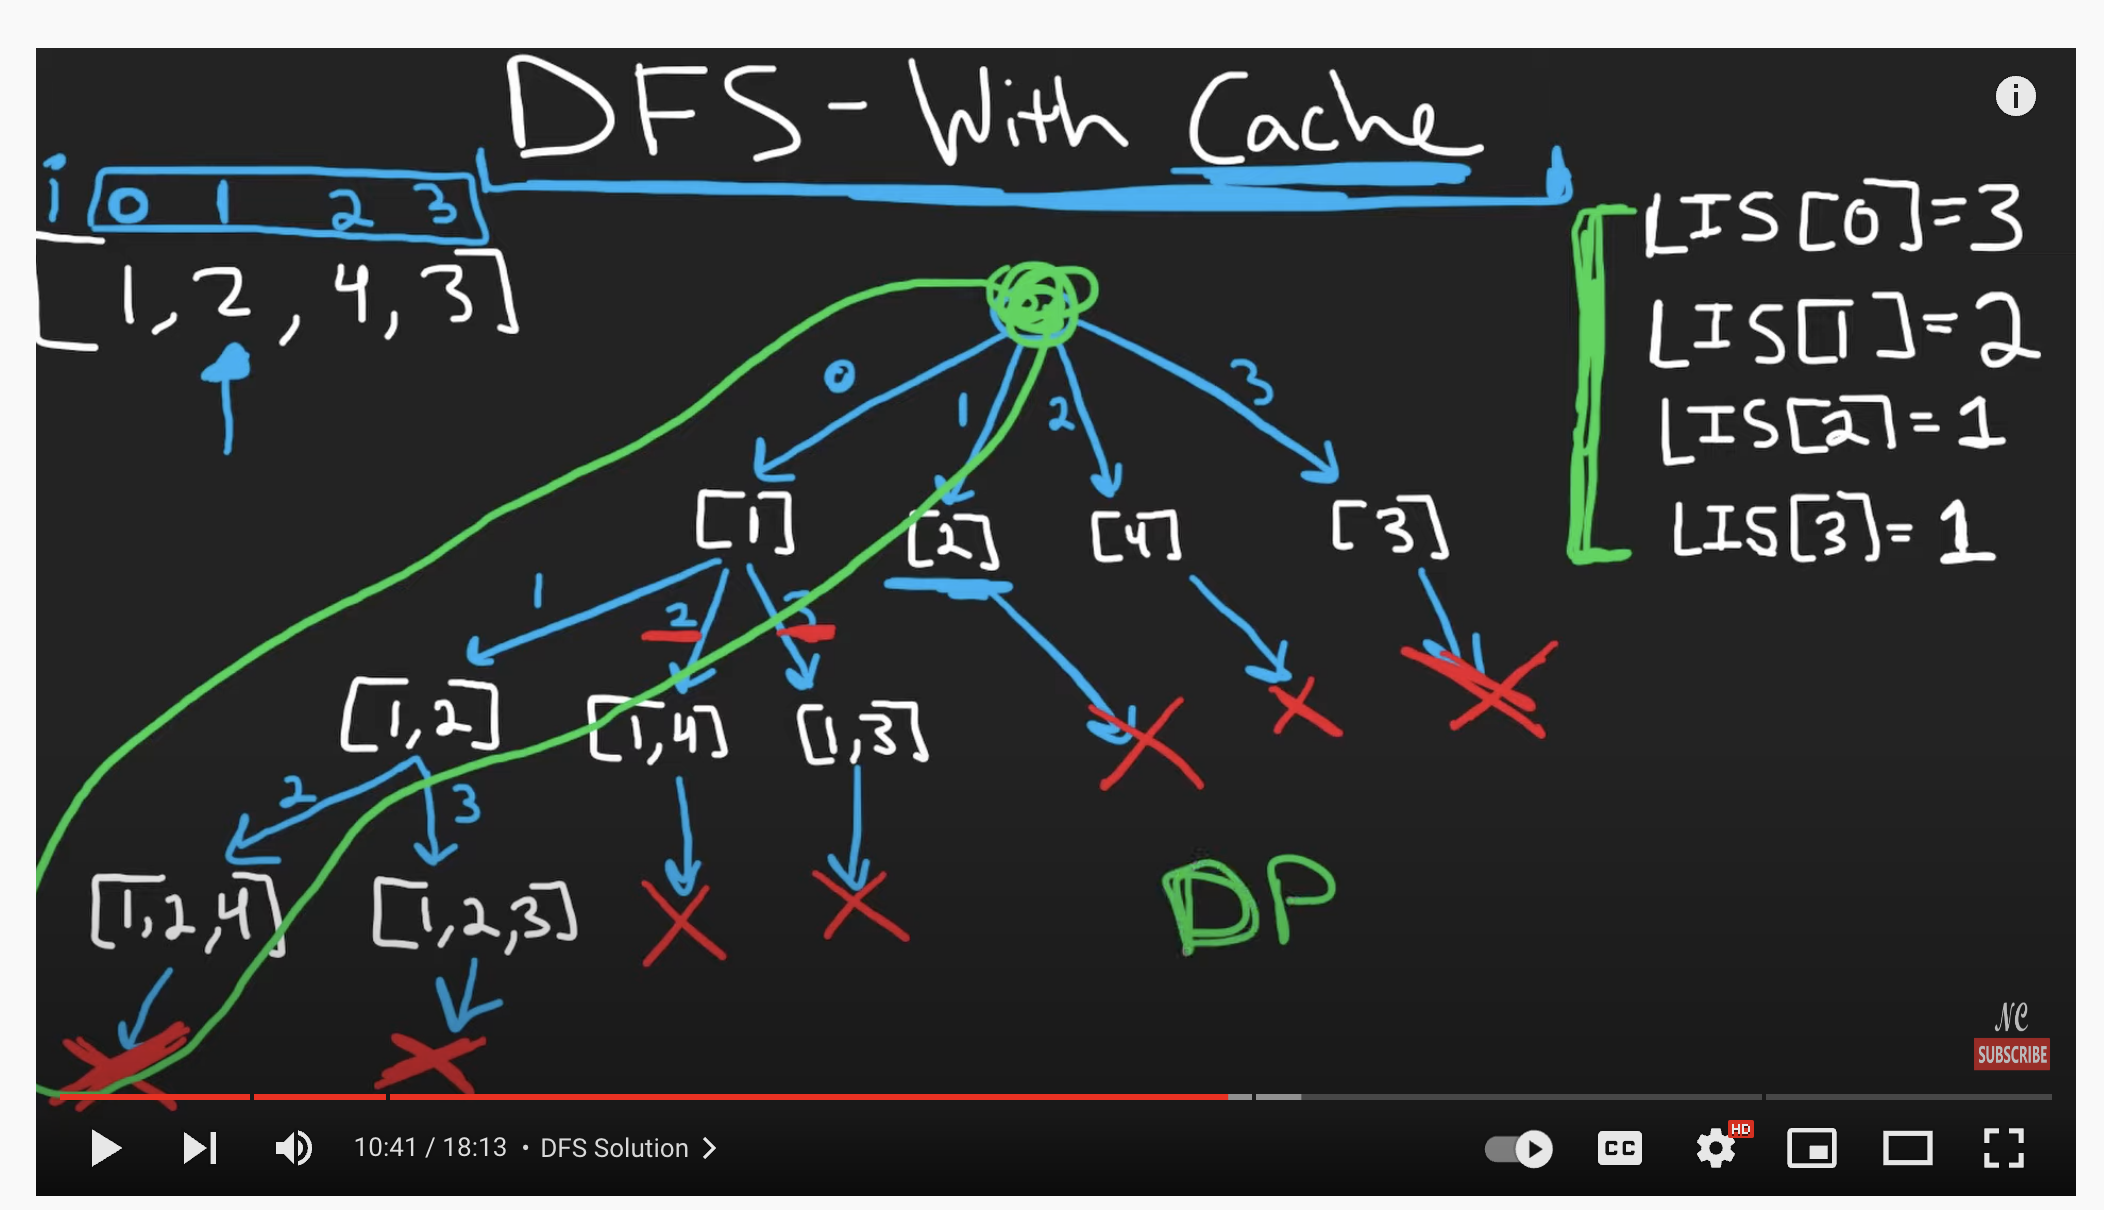 DFS - With Cache
i 0 1 2 3
[1, 2, 4, 3]
LIS[0]=3
LIS[1]=2
LIS[2]=1
LIS[3]=1
0 1 2 3
[1] [2] [4] [3]
1 2 3
[1,2] [1,4] [1,3]
2 3
[1,2,4] [1,2,3]
DP
NC
SUBSCRIBE
10:41 / 18:13 • DFS Solution
CC HD